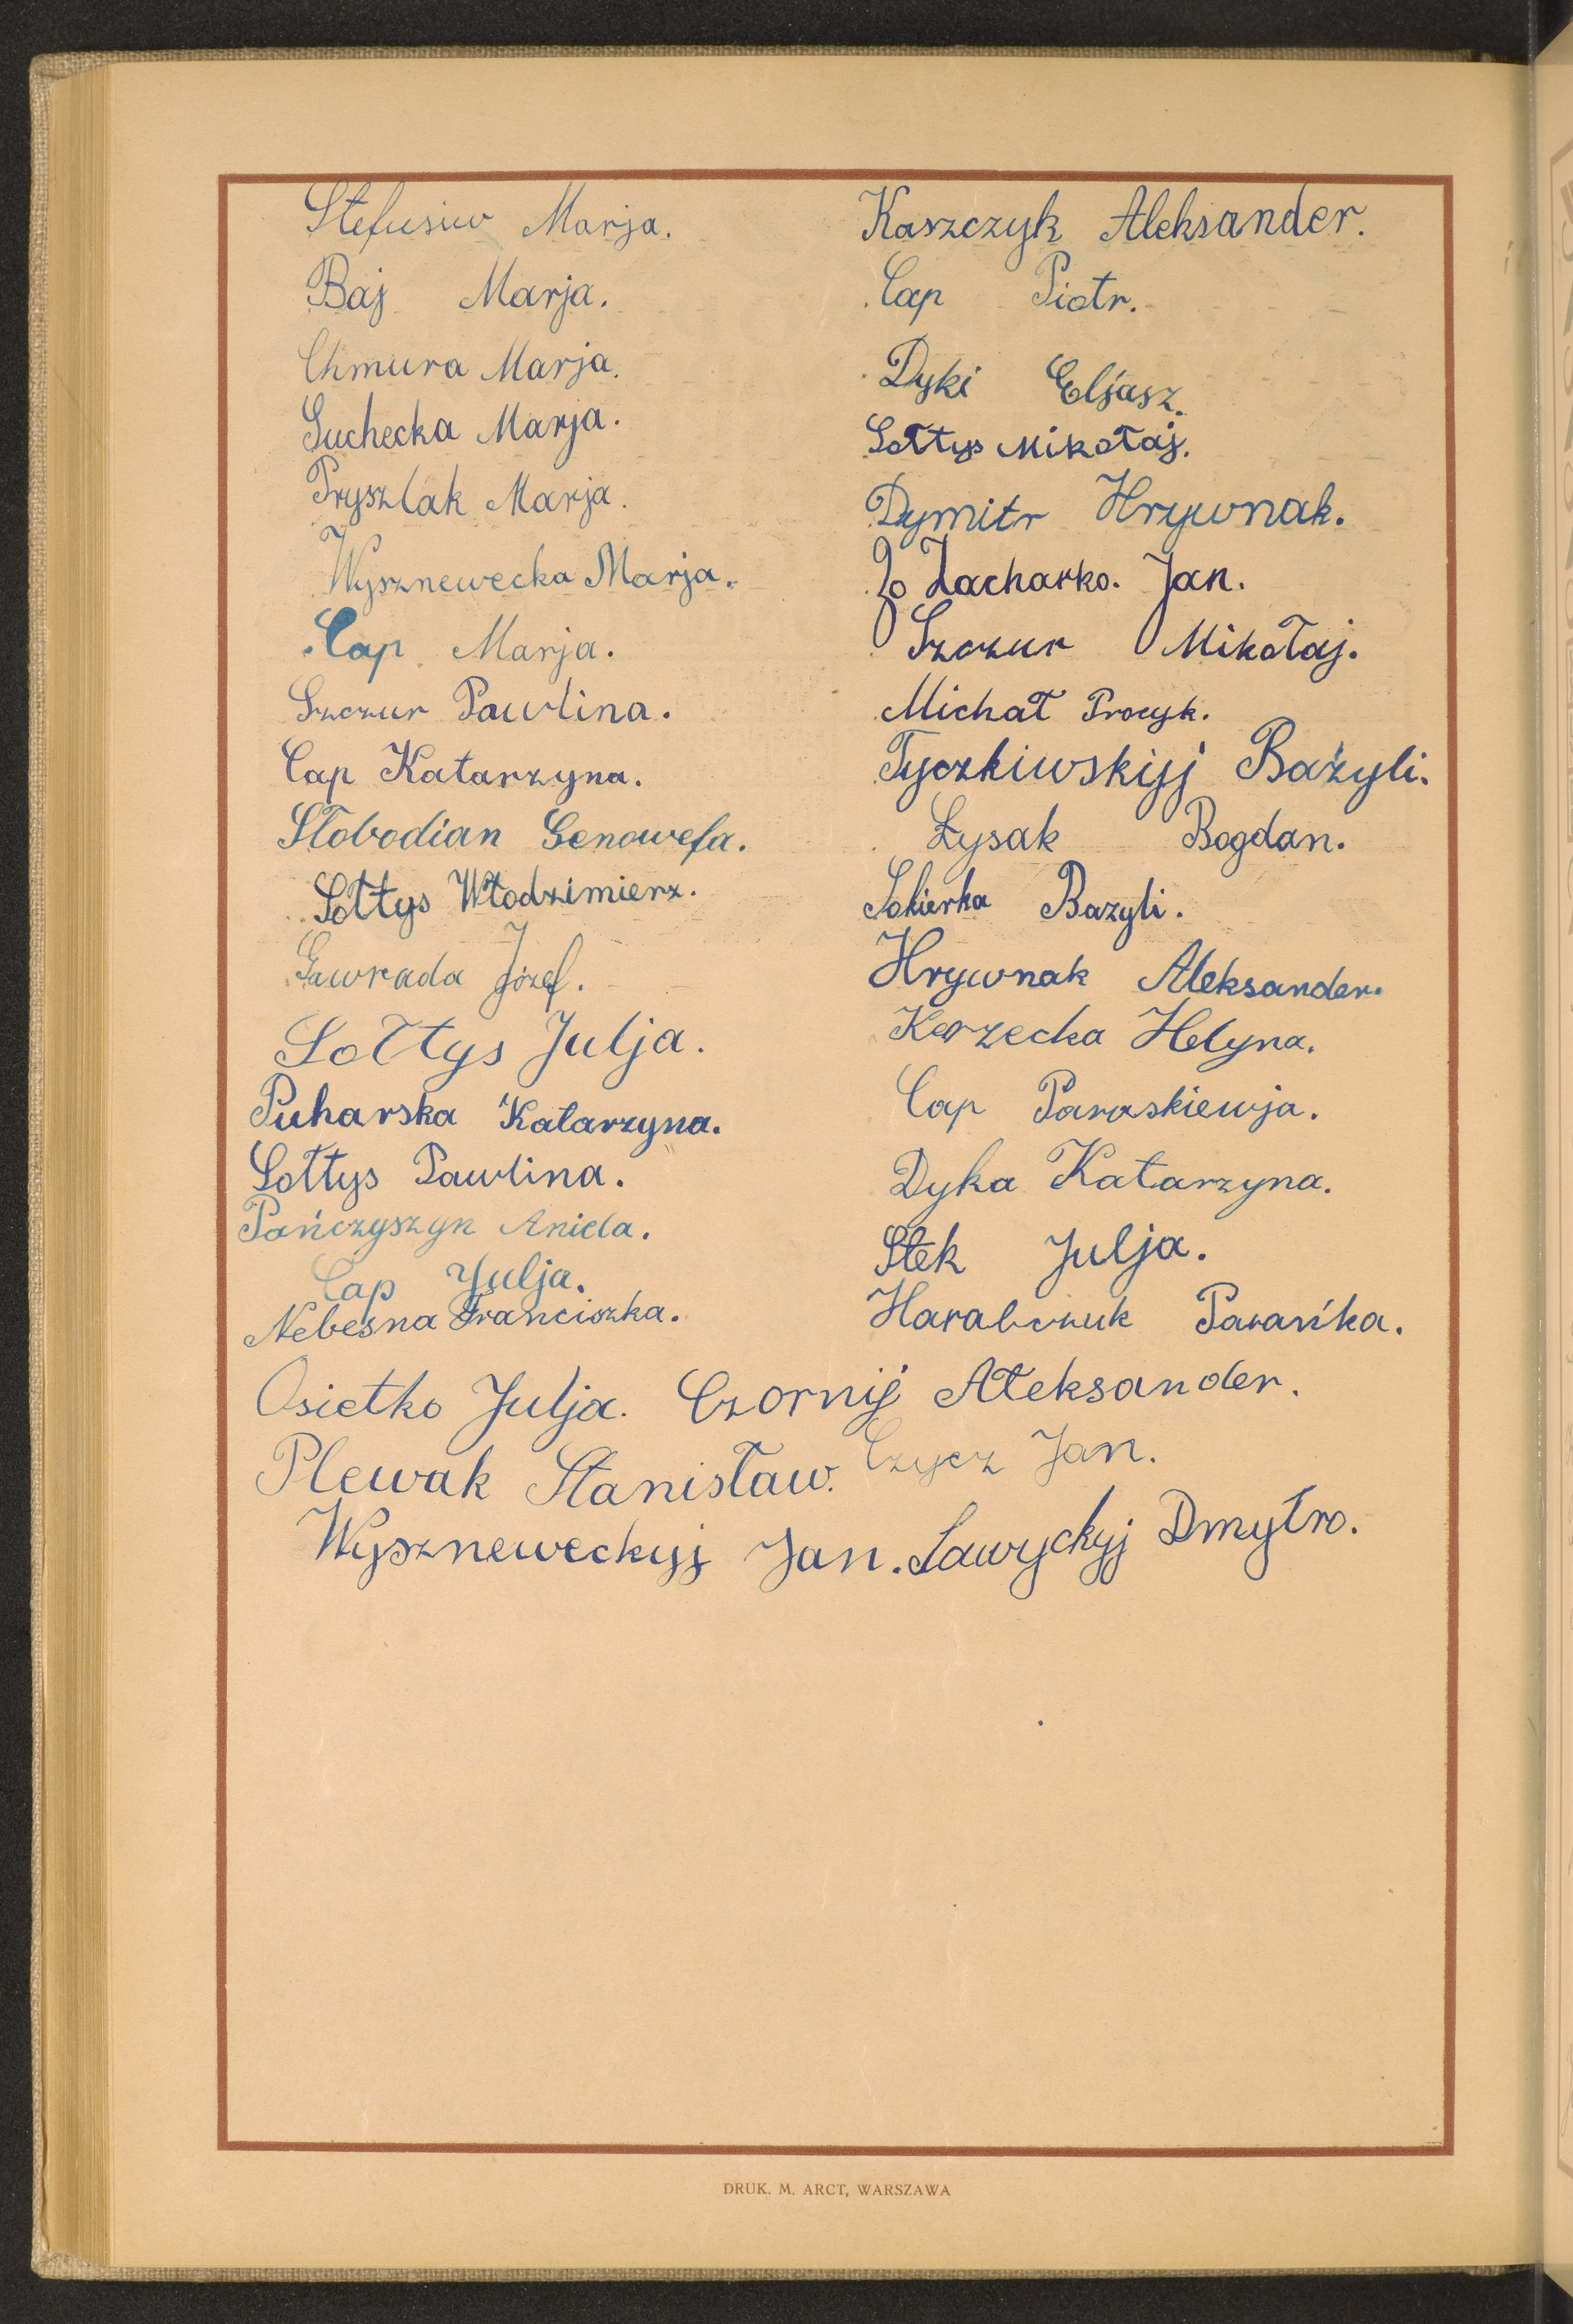 Stefusiw Marja.
Baj Marja.
Chmura Marja.
Suchecka Marja.
Pryszlak Marja.
Wysznewecka Marja.
Cap Marja.
Szczur Pawlina.
Cap Katarzyna.
Słobodian Genowefa.
Sołtys Włodzimierz.
Gawrada Józef.
Sołtys Julja.
Puharska Katarzyna.
Sołtys Pawlina.
Pańczyszyn Aniela.
Cap Julja.
Nebesna Franciszka.
Kaszczyk Aleksander.
Cap Piotr.
Dyki Eljasz.
Sołtys Mikołaj.
Dymitr Hrywnak.
Zacharko. Jan.
Szczur Mikołaj.
Michał Procyk.
Tyczkiwskijj Bazyli.
Łysak Bogdan.
Sokierka Bazyli.
Hrywnak Aleksander.
Korzecka Helyna.
Cap Paraskiewja.
Dyka Katarzyna.
Stek Julja.
Harabczuk Parańka.
Osietko Julja. Czornij Ałeksander.
Plewak Stanisław. Czycz Jan.
Wyszneweckyj Jan. Sawyckyj Dmytro.
DRUK. M. ARCT, WARSZAWA